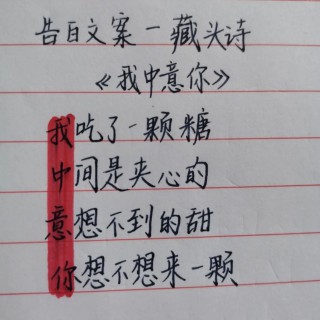 告白文案一藏头诗
《我中意你》
我吃了一颗糖
中间是夹心的
意想不到的甜
你想不想来一颗